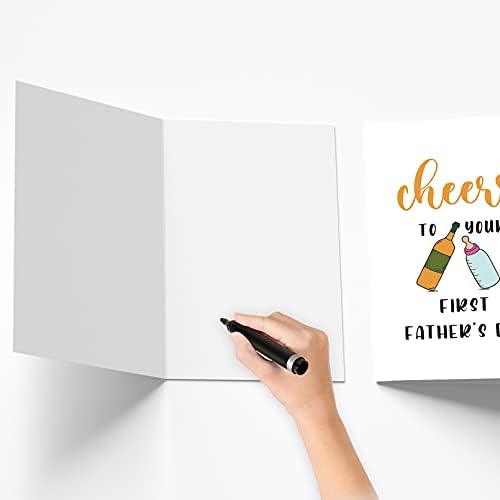 cheers
TO YOUR
FIRST
FATHER'S D